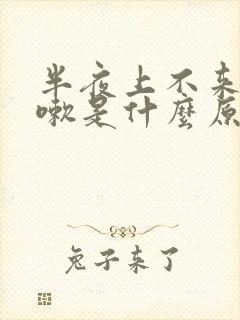 半夜上不来
嗽是什麼原
兔子来了